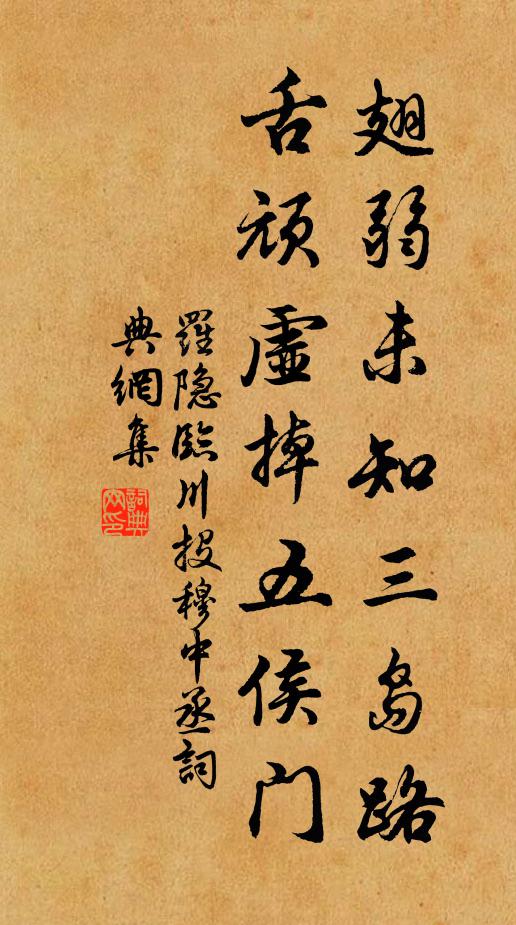 翅弱未知三岛路
舌頑虛掉五侯門
羅隐臨川投穆中丞詞
典網集
詞典
网印